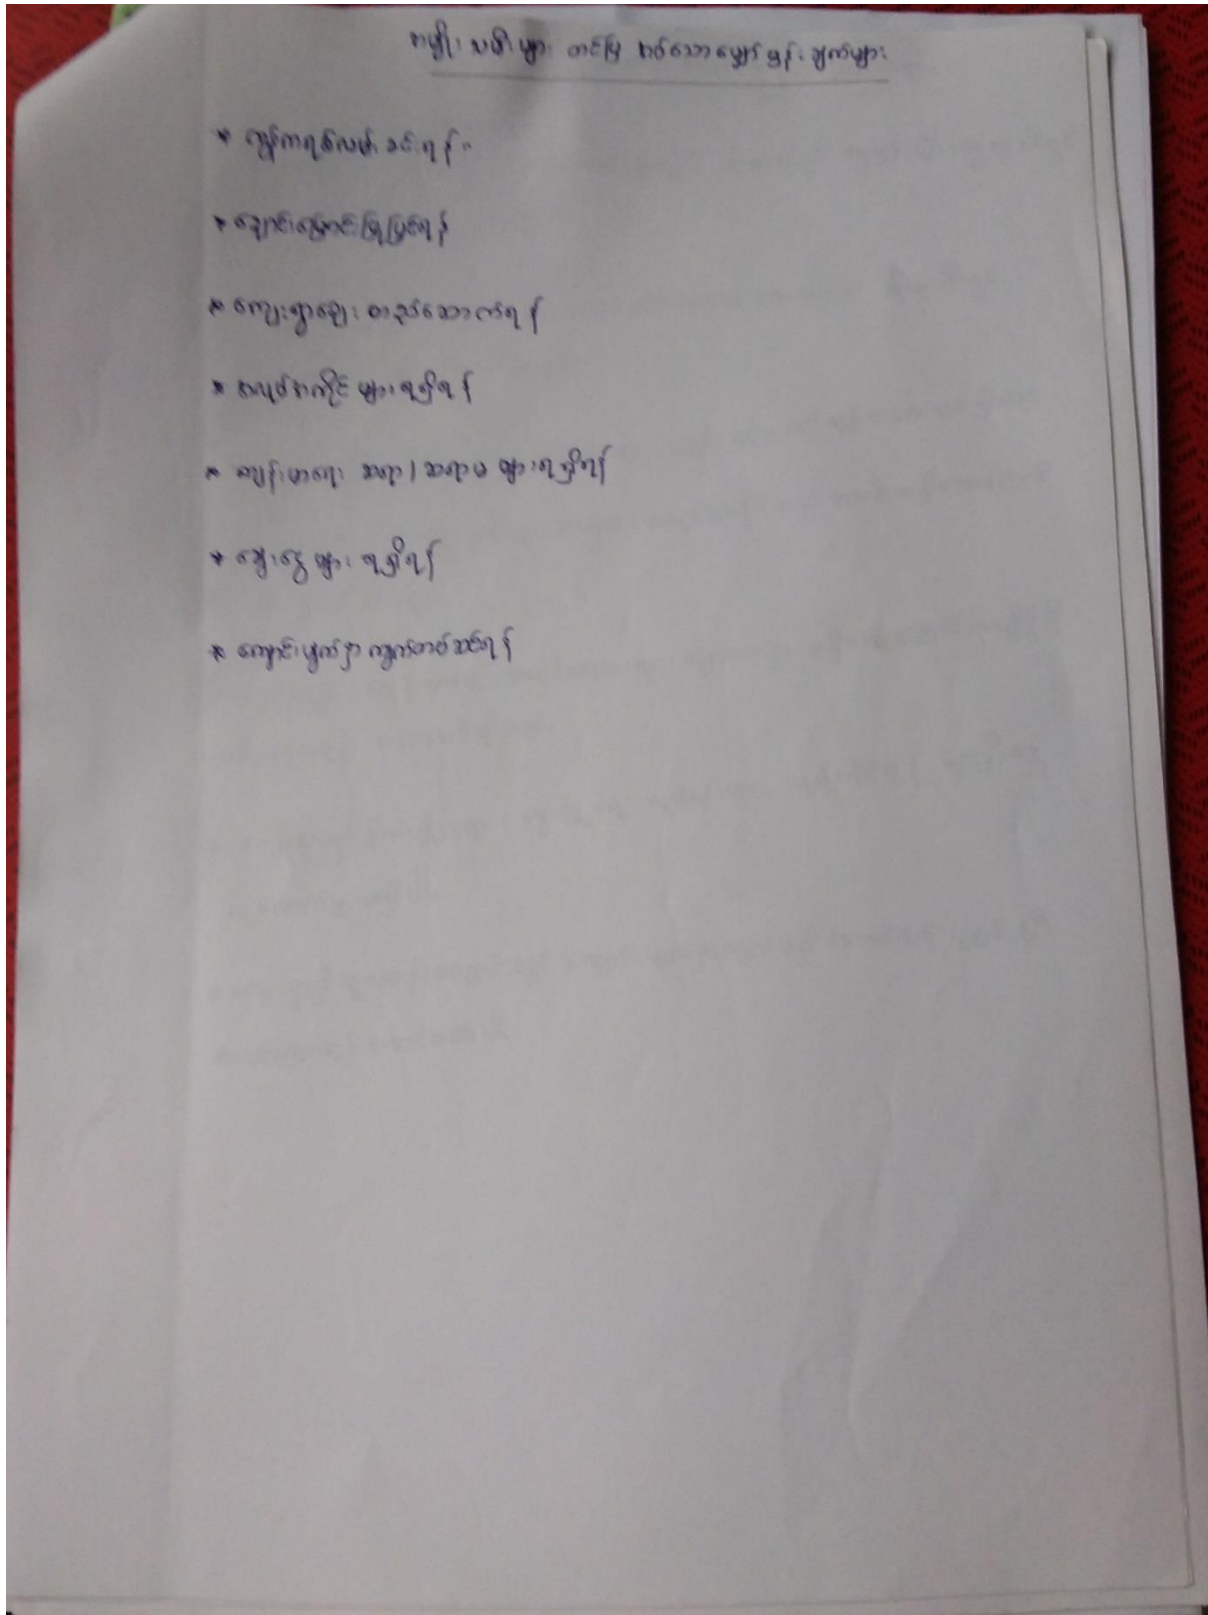 အမျိုးသမီးများ တင်ပြ အပ်သော မျှော်မှန်းချက်များ
* ကွန်ကရစ်လမ်းခင်းရန်။
* ချောင်းမြောင်းပြုပြင်ရန်
* ကျေးရွာဈေး တည်ဆောက်ရန်
* အလုပ်အကိုင် များရရှိရန်
* ကျန်းမာရေး ဆရာ / ဆရာမ များရရှိရန်
* ချေးငွေ များ ရရှိရန်
* ကျောင်းမျက်နှာကျက်တပ်ဆင်ရန်